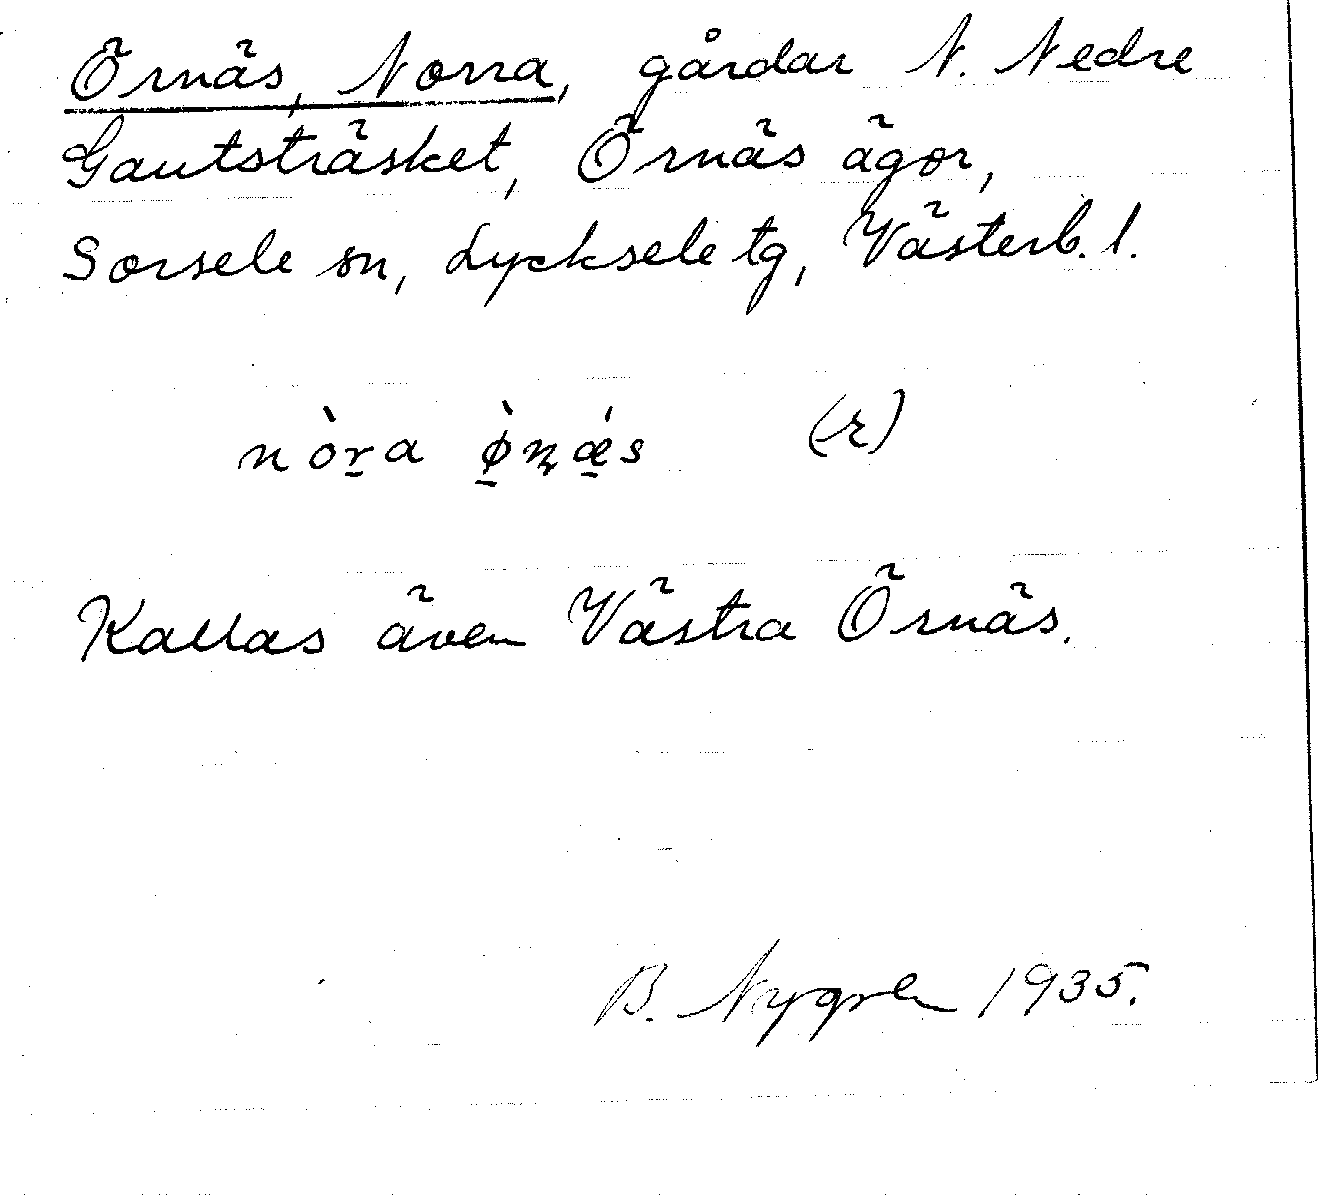 Örnäs, Norra, gårdar N. Nedre
Gautsträsket, Örnäs ägor,
Sorsele sn, Lycksele tg, Västerb. l.
nò̱ra ø̱̀ɳǽ̱s (-r)
Kallas även Västra Örnäs.
B. Nygren 1935.